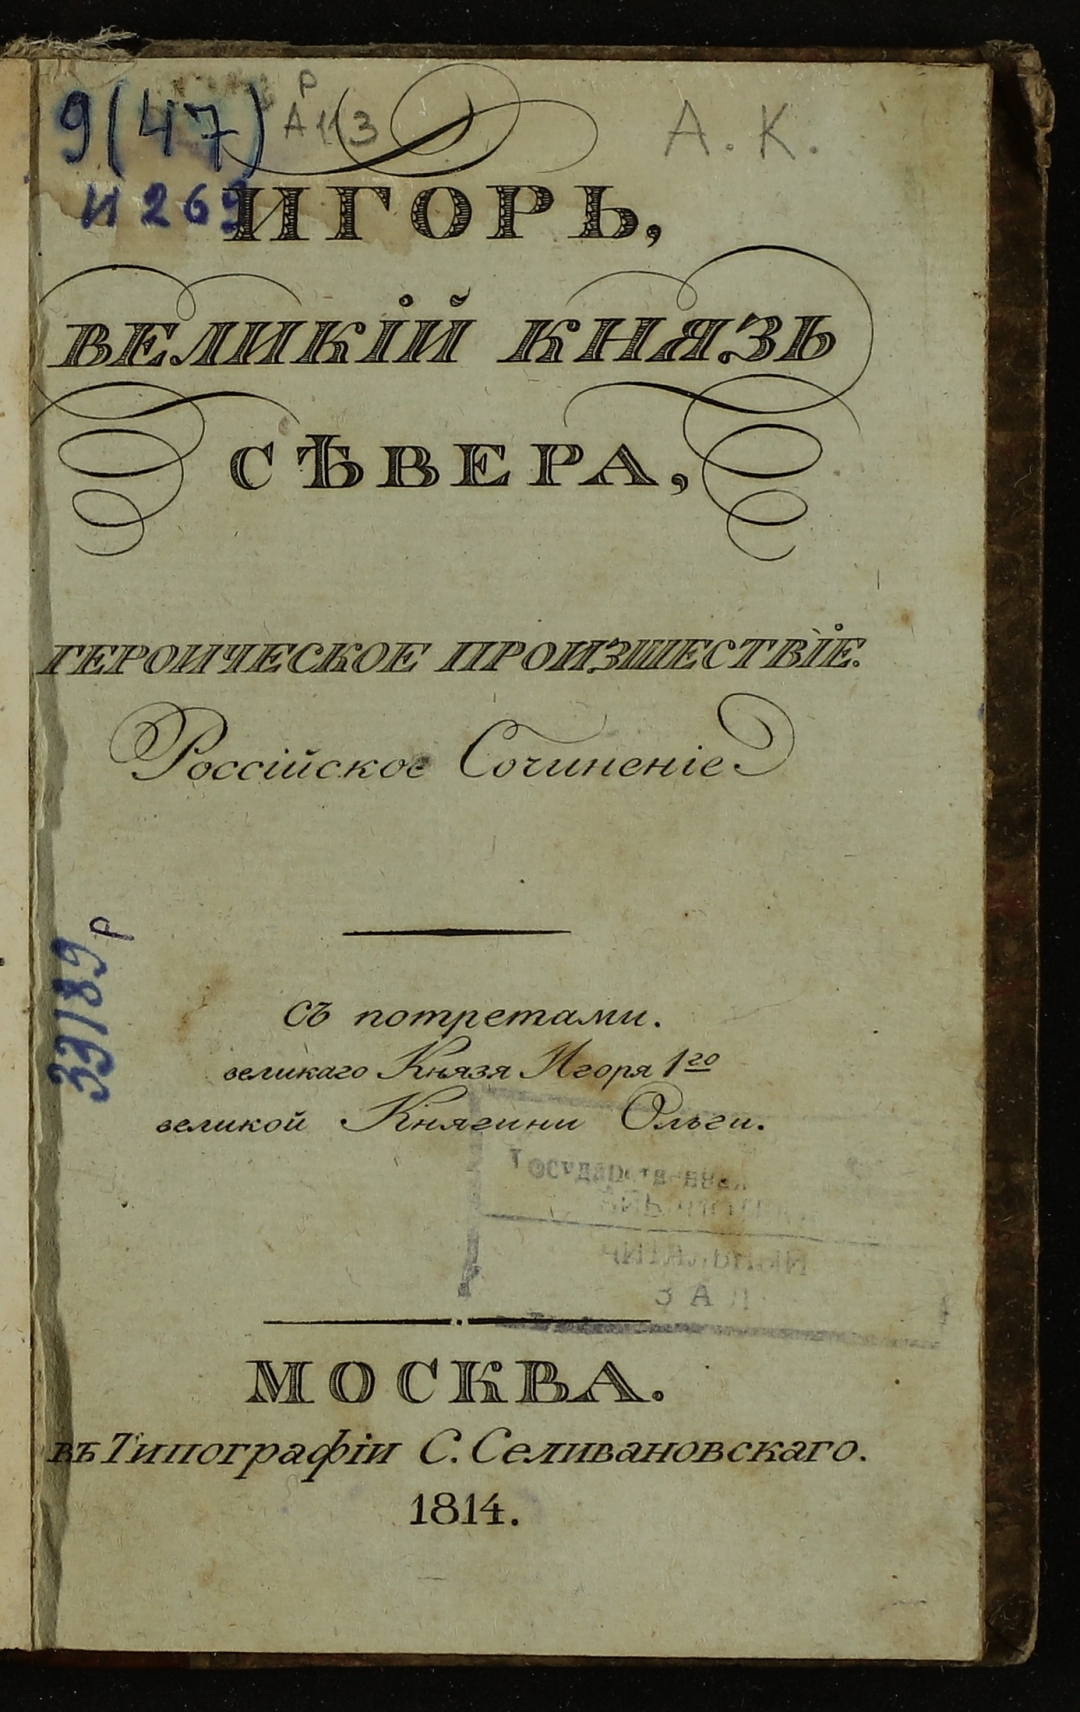 9(47)
И269
Р
А 1(3
А. К.
ИГОРЬ,
ВЕЛИКІЙ КНЯЗЬ
СѢВЕРА,
ГЕРОИЧЕСКОЕ ПРОИЗШЕСТВІЕ.
Россійское Сочиненіе
съ потретами.
великаго Князя Игоря 1го
великой Княгини Ольги.
33189 р
Государственная
ЗАЛ
МОСКВА.
въ Типографіи С. Селивановскаго.
1814.